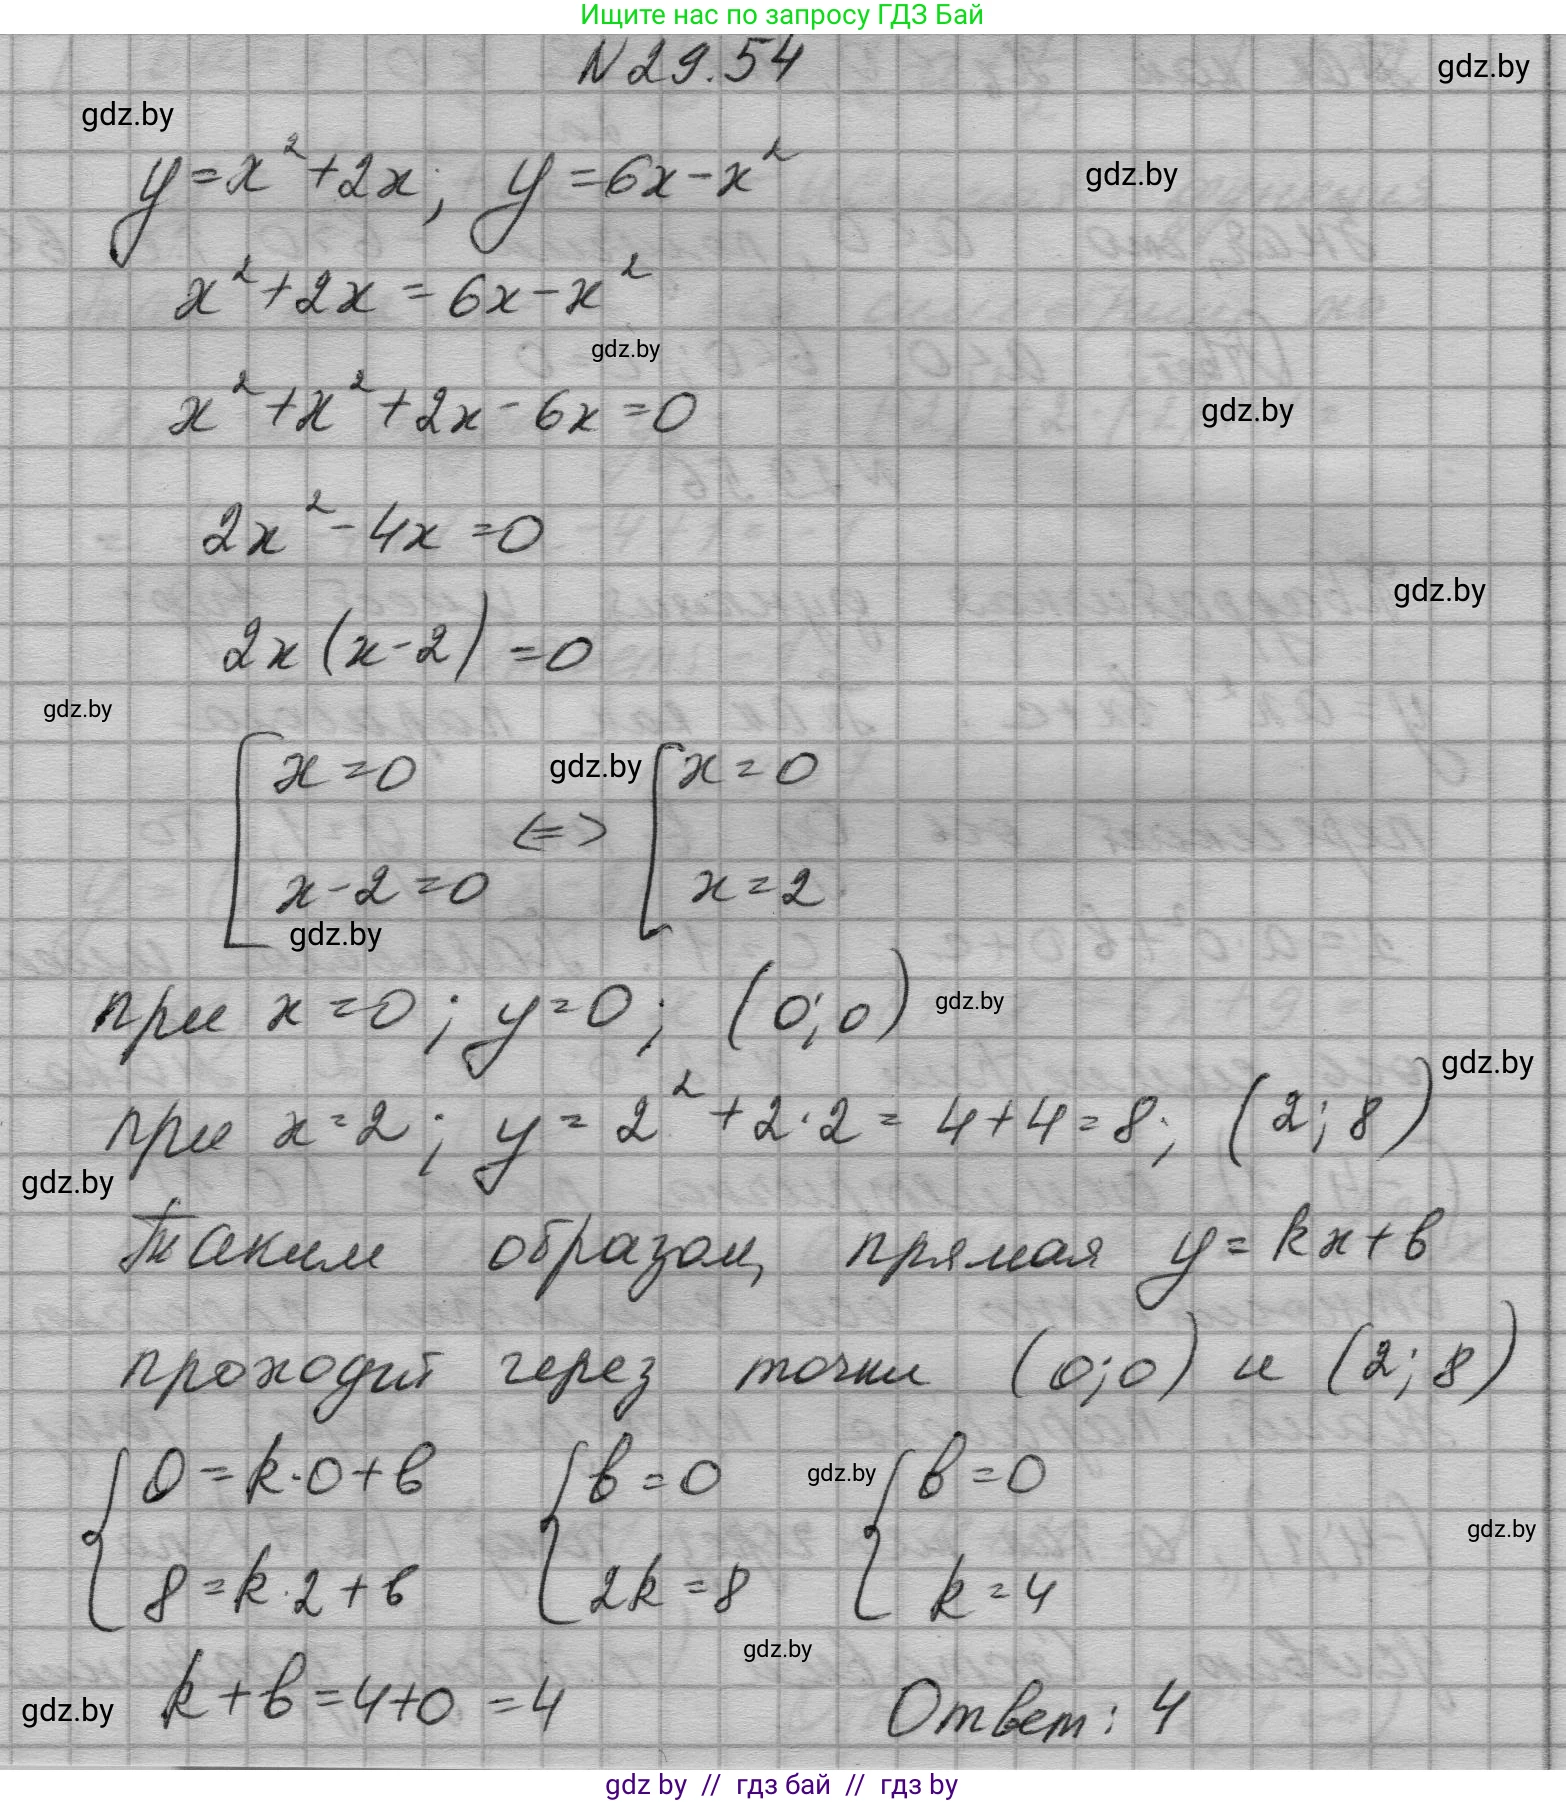 Ищите нас по запросу ГДЗ Бай
N 29.54
gdz.by
gdz.by
y=x²+2x; y=6x-x²
gdz.by
x²+2x=6x-x²
gdz.by
x²+x²+2x-6x=0
gdz.by
2x²-4x=0
gdz.by
2x(x-2)=0
gdz.by
[x=0 gdz.by [x=0
<=>
x-2=0 x=2
gdz.by
при x=0; y=0; (0;0) gdz.by
gdz.by
при x=2; y=2²+2·2=4+4=8; (2;8)
gdz.by
Таким образом, прямая y=kx+b
проходит через точки (0;0) и (2;8)
{0=k·0+b {b=0 gdz.by {b=0
gdz.by
8=k·2+b 2k=8 k=4
gdz.by
gdz.by k+b=4+0=4 Ответ: 4
gdz by // гдз бай // гдз by